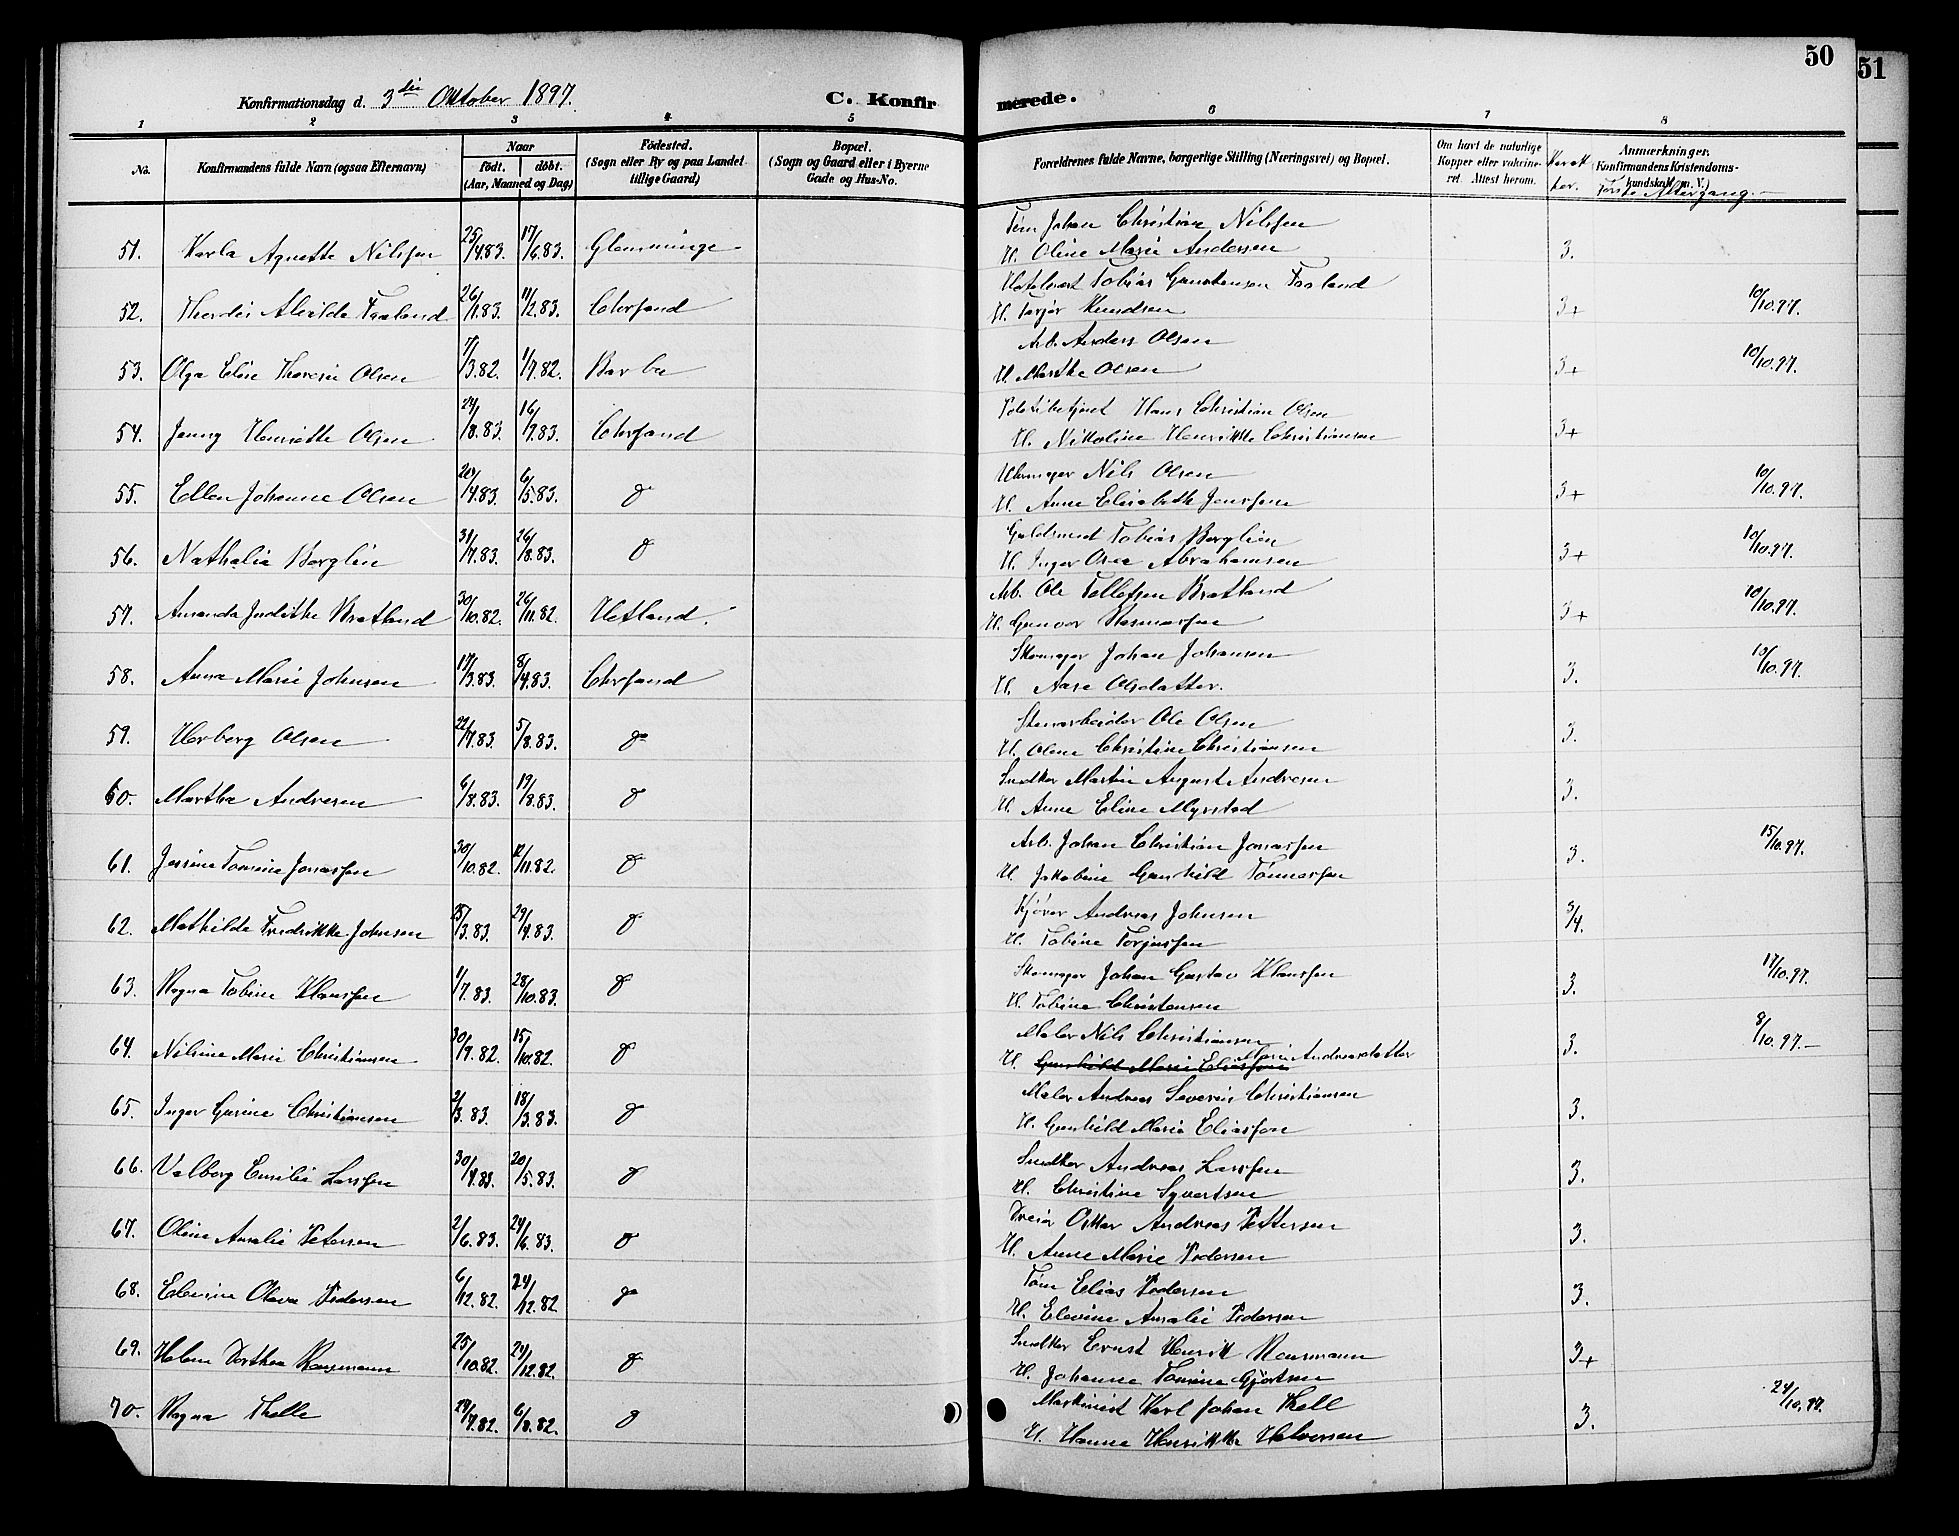 50
51
Konfirmationsdag d. 3die Oktober 1897.
C. Konfirmerede.
1 2 3 4 5 6 7 8
No. Konfirmandens fulde Navn (ogsaa Efternavn) Naar født. døbt. (Aar, Maaned og Dag) Fødested. (Sogn eller By og paa Landet tillige Gaard) Bopæl. (Sogn og Gaard eller i Byerne Gade og Hus-No. Forældrenes fulde Navne, borgerlige Stilling (Næringsvei) og Bopæl. Om havt de naturlige Kopper eller vaksineret. Attest herom. Karakter. Anmærkninger. (Konfirmandens Kristendomskundskab m. V.) Første Altergang.
51. Karla Agnette Nilssen 25/4.83. 17/6.83. Glemminge Tøm Johan Christian Nilssen
H. Oline Marie Andersen 3.
52. Thordis Alvilde Faaland 26/1.83. 11/2.83. Chrsand Tobias Gunstensen Faaland
H. Torjør Knudsen 3+ 10/10.97.
53. Olga Elise Therese Olsen 7/3.82. 1/7.82. Barbu Arb. Anders Olsen
H. Marthe Olsen 3+ 10/10.97.
54. Jenny Henriette Olsen 24/8.83. 16/9.83. Chrsand Politibetjent Hans Christian Olsen
H. Nikoline Henrikke Christiansen 3+
55. Ellen Johanne Olsen 20/4.83. 6/5.83. do Uhrmager Nils Olsen
H. Anne Elisabeth Jenssen 3+ 10/10.97.
56. Nathalia Berglin 31/7.83. 26/8.83. do Guldsmed Tobias Berglin
H. Inger Osea Abrahamsen 3+ 10/10.97.
57. Amanda Judithe Bratland 30/10.82. 26/11.82. Hetland. Arb. Ole Tollefsen Bratland
H. Gunvor Rasmussen 3+ 10/10.97.
58. Anna Marie Johnsen 17/3.83. 8/4.83. Chrsand Skomager Johan Johansen
H. Aase Olsdatter. 3. 10/10.97.
59. Herborg Olsen 22/7.83. 5/8.83. do Stenarbeider Ole Olsen
H. Oline Christine Christiansen 3.
60. Marthe Andresen 6/8.83. 19/8.83. do Snedker Martin August Andresen
H. Anne Eline Myrstad 3.
61. Jensine Tomine Jonassen 30/10.82. 12/11.82. do Arb. Johan Christian Jonassen
H. Jakobine Gunhild Tønnessen 3. 15/10.97.
62. Mathilde Fredrikke Johnsen 25/3.83. 29/4.83. do Kjører Andreas Johnsen
H. Tobine Torjussen 3/4.
63. Ragna Tobine Klaussen 1/7.83. 28/10.83. do Skomager Johan Gustav Klaussen
H. Tobine Christensen 3. 17/10.97.
64. Nilsine Marie Christiansen 30/9.82. 15/10.82. do Maler Nils Christiansen
H. Gunhild Marie Eliassen Marie Andreasdatter 3. 8/10.97.
65. Inger Gurine Christiansen 2/3.83. 18/3.83. do Maler Andreas Severin Christiansen
H. Gunhild Marie Eliassen 3.
66. Valborg Emilie Larssen 30/4.83. 20/5.83. do Snedker Andreas Larssen
H. Christine Syvertsen 3.
67. Oline Amalie Petersen 2/6.83. 24/6.83. do Dreier Oskar Andreas Pettersen
H. Anne Marie Pedersen 3.
68. Edevine Olava Pedersen 6/12.82. 24/12.82 do Tøm Elias Pedersen
H. Elevine Amalie Pedersen 3.
69. Helene Dorthea Rausmann 25/10.82. 24/12.82. do Snedker Ernst Henrik Rausmann
H. Johanne Tomine Gjertsen 3+
70. Ragna Thelle 29/7.82. 6/8.82. do Maskinist Karl Johan Thell
H. Hanne Henrikke Halvorsen 3. 24/10.97.